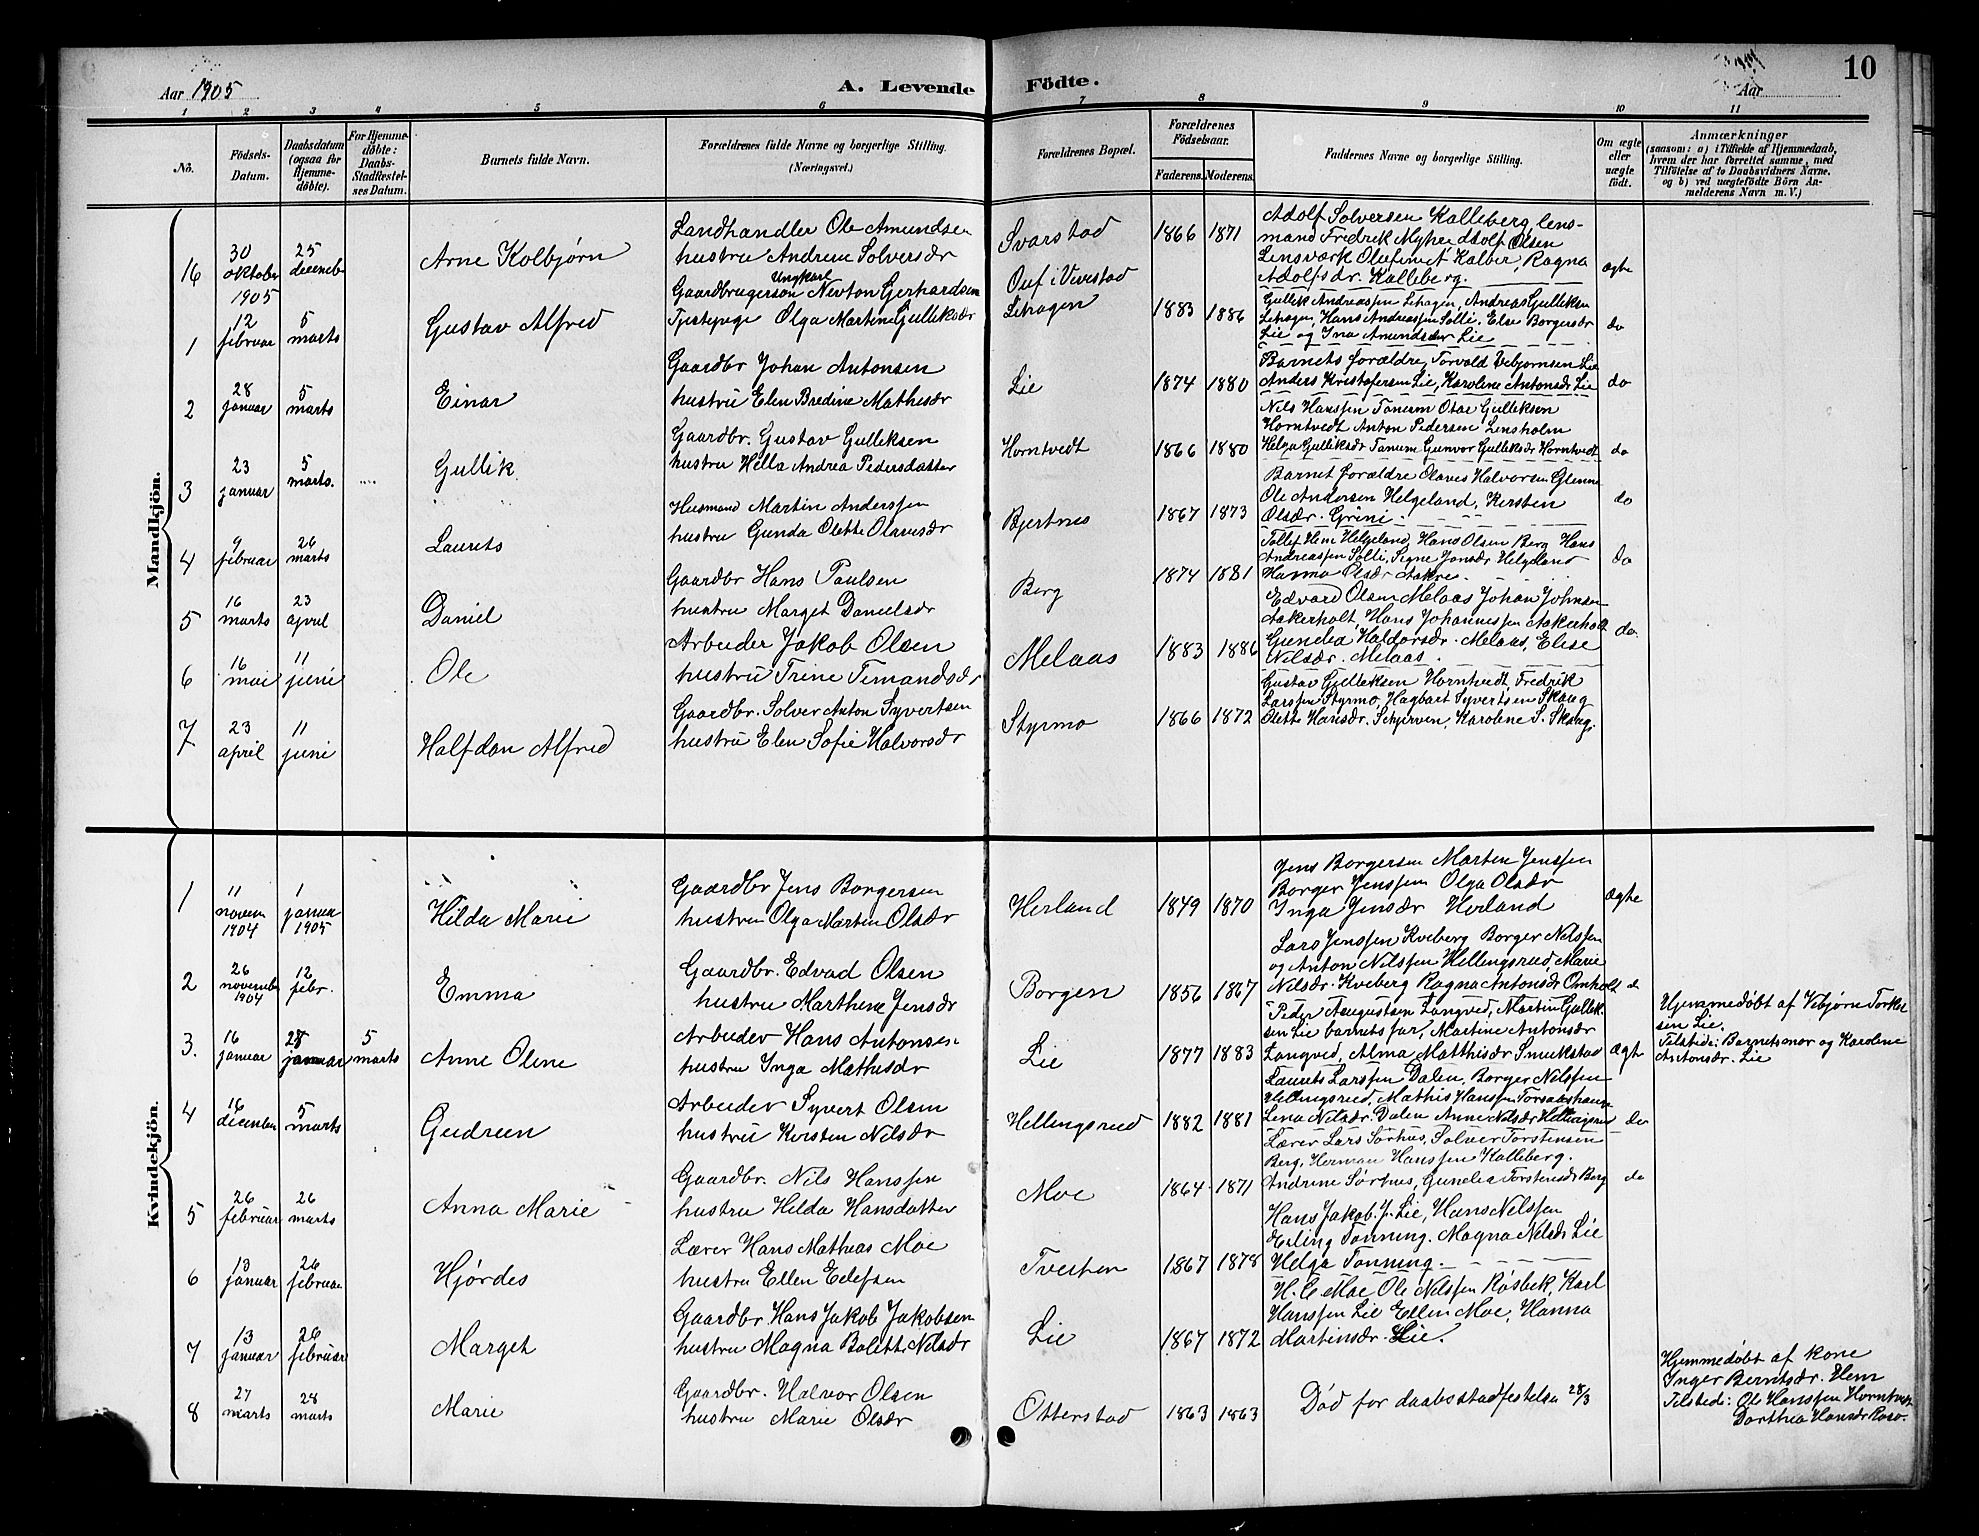 Aar 1905
A. Levende Födte.
Aar
10
1 2 3 4 5 6 7 8 9 10 11
No.
Födsels-Datum.
Daabsdatum (ogsaa for Hjemme-döbte).
For Hjemme-döbte: Daabs-Stadfæstel-ses Datum.
Barnets fulde Navn.
Forældrenes fulde Navne og borgerlige Stilling. (Næringsvei.)
Forældrenes Bopæl.
Forældrenes Födselsaar.
Faderens. Moderens.
Faddernes Navne og borgerlige Stilling.
Om ægte eller uægte födt.
Anmærkninger
(saasom: a) i Tilfælde af Hjemmedaab,
hvem der har forrettet samme, med
Tilföielse af to Daabsvidners Navne.
og b) ved uægtefödte Börn An-
melderens Navn m. V.)
Mandkjön.
16 30 oktober 25 decemb
Arne Kolbjørn
Landhandler Ole Amundsen
hustru Andrine Solversdr
Svarstad
1866 1871
Adolf Solversen Kalleberg, lens-
mand Fredrik Myhre Adolf Olsen
Lensværk Olufine A Kalber, Ragna
Adolfsdr. Kalleberg.
ægte
1905
1 12 februar 5 marts
Gustav Alfred
Ungkarl
Gaardbrugersøn Newton Gerhardsen
Tjestepige Olga Martine Gulliksdr
Ouf i Vivestad
Lihagen
1883 1886
Gullik Andreassen Lihagen, Andreas Gulliksen
Lihagen, Hans Andreassen Solli, Else Borgersdr
Lie og Ina Amundsdr Lie
do
2 28 januar 5 marts
Einar
Gaardbr Johan Antonsen
hustru Elen Bredine Mathisdr
Lie
1874 1880
Barnets forældre, Torvald Vebjørnsen Lie
Anders Kristofersen Lie, Karoline Antonsdr Lie
do
3 23 januar 5 marts.
Gullik
Gaardbr. Gustav Gulliksen
hustru Hella Andrea Pedersdatter
Horntvedt
1866 1880
Nils Hanssen Tanum Otar Gulliksen
Horntvedt Anton Pedersen Lensholm
Helga Gulliksdr Tanum Gunvor Gulliksdr Horntvedt
do
4 9 februar 26 marts
Laurets
Husmand Martin Anderssen
hustru Gunda Olette Olavesdr
Bjertnes
1867 1873
Barnet forældre Olaves Halvorsen Glenne
Ole Andersen Helgeland, Kersten
Olsdr. Grini
do
5 16 marts 23 april
Daniel
Gaardbr Hans Paulsen
hustru Marget Danielsdr
Berg
1874 1881
Tollef Hem Helgeland, Hans Olsen Berg Hans
Andreassen Solli, Signe Jonsdr Helgeland
Hanna Olsdr Aakre.
do
6 16 mai 11 juni
Ole
Arbeider Jakob Olsen
hustru Trine Timandsdr
Melaas
1883 1886
Edvard Olsen Melaas Johan Johnsen
Aakerholt, Hans Johannessen Aakerholt
Gunelia Haldorsdr. Melaas, Elise
Nilsdr. Melaas.
do.
7 23 april 11 juni
Halfdan Alfred
Gaardbr. Solver Anton Syvertsen
hustru Elen Sofie Halvorsdr
Styrmo
1866 1872
Gustav Gulliksen Horntvedt, Fredrik
Larssen Styrmo, Hagbart Syvertsen Skaug
Olette Hansdr. Schjerven, Karoline S. Skaug.
Kvindekjön.
1 11 novem 1904 1 janua 1905
Hilda Marie
Gaardbr Jens Borgersen
hustru Olga Martine Olsdr
Herland
1849 1870
Jens Borgersen Morten Jenssen
Borger Jenssen Olga Olsdr
Inga Jensdr Herland
ægte
2 26 novembe 1904 12 febr.
Emma
Gaardbr. Edvad Olsen
hustru Marthine Jensdr
Borgen
1856 1867
Lars Jenssen Kveberg Borger Nilssen
og Anton Nilssen Hellingsrud, Marie
Nilsdr. Kveberg Ragna Antonsdr Omholt
d
3. 16 januar 28 januar 5 marts
Anne Oline
Arbeider Hans Antonsen
hustru Inga Mathisdr
Lie
1877 1883
Peder Augustsen Langved, Martin Gullik-
sen Lie barnets far, Martine Antonsdr
Langved, Alma Matthisdr Smukstad
ægte
Hjemmedøbt af Vebjørn Torkel
sen Lie.
Tilstede: Barnets mor og Karoline
Antonsdr. Lie
4 16 december 5 marts
Gudrun
Arbeider Syvert Olsen
hustru Kersten Nilsdr
Hellingsrud
1882 1881
Laurets Larssen Dalen, Borger Nilssen
Hellingsrud, Mathis Hanssen Torsaashaugen
Lena Nilsdr. Dalen Anne Nilsdr Hellingsrud
do
5 26 februar 26 marts
Anna Marie
Gaardbr. Nils Hanssen
hustru Hilda Hansdatter
Moe
1864 1871
Lærer Lars Sørhus, Solver Torstensen
Berg, Herman Hanssen Kalleberg.
Andrine Sørhus, Gunelia Torstensdr Berg
do
6 13 januar 26 februar
Hjørdes
Lærer Hans Mathias Moe
hustru Ellen Edefsen
Tveiten
1867 1878
Hans Jakob J. Lie, Hans Nilssen
Erling Tonning. Magna Nilsdr Lie
Helga Tonning.
7 13 januar 26 februar
Marget
Gaardbr Hans Jakob Jakobsen
hustru Magna Bolette Nilsdr
Lie
1867 1872
H. C Moe Ole Nilssen Røsbek, Karl
Hanssen Lie Ellen Moe, Hanna
Martinsdr. Lie.
8 27 marts 28 marts
Marie
Gaardbr. Halvor Olsen
hustru Marie Olsdr
Otterstad
1863 1863
Død før daabsstadfestelsa 28/3
Hjemmedøbt af kone
Inger Berntsdr. Hem
Tilstede: Ole Hanssen Horntvet
Dorthea Hansdr Roso.